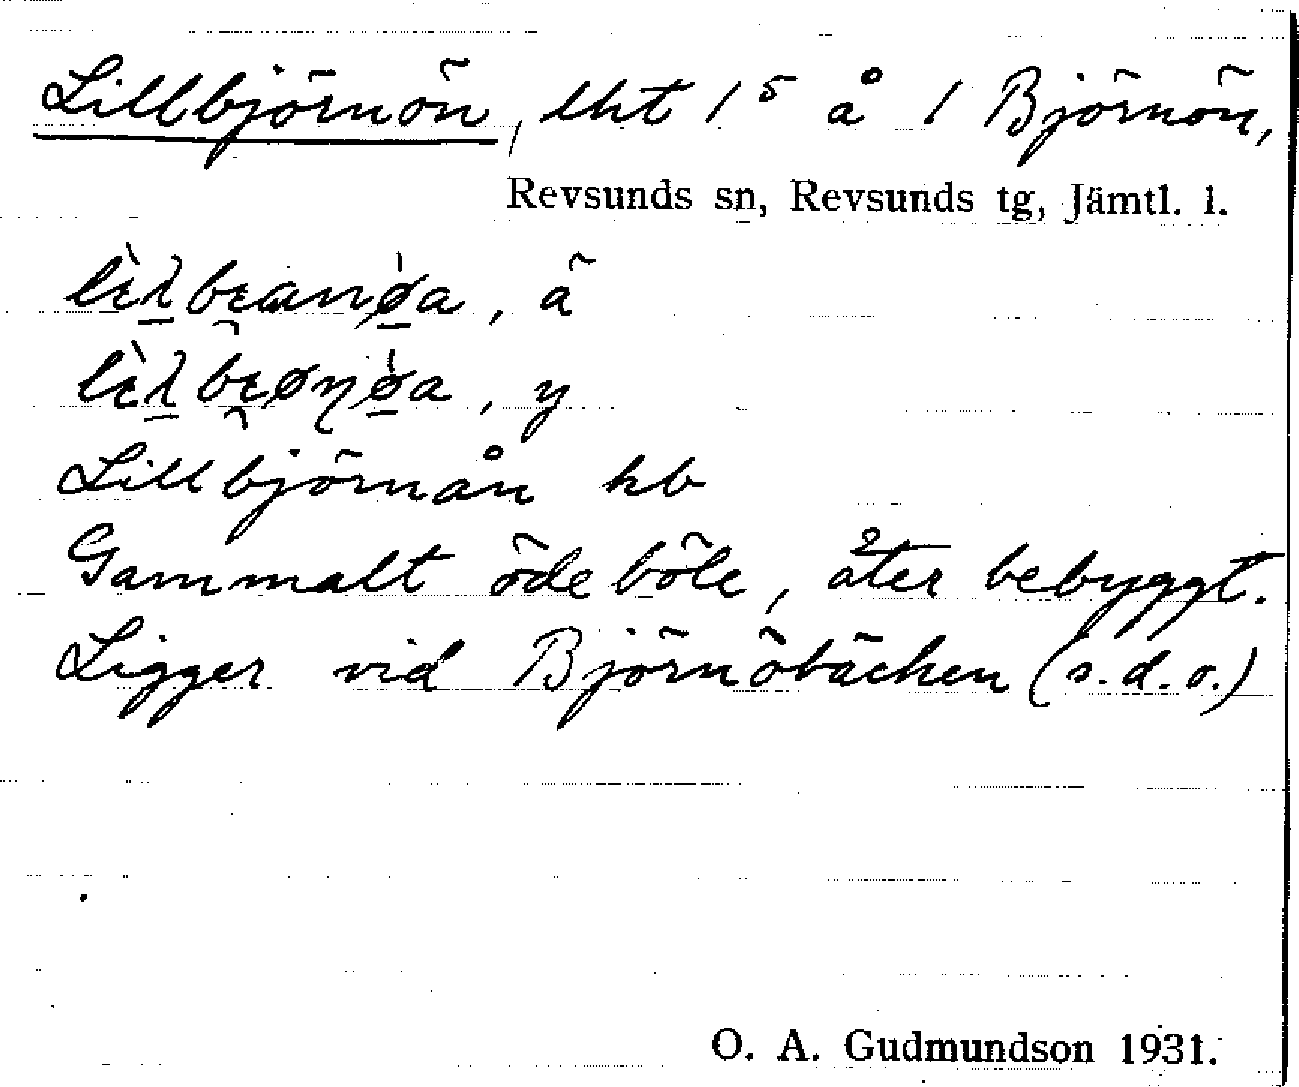 Lillbjörnön, lht 1⁵ å 1 Björnön,
Revsunds sn, Revsunds tg, Jämtl. l.
, ä
, y
Lillbjörnån hb
Gammalt ödeböle, åter bebyggt.
Ligger vid Björnöbäcken (s.d.o.)
O. A. Gudmundson 1931.